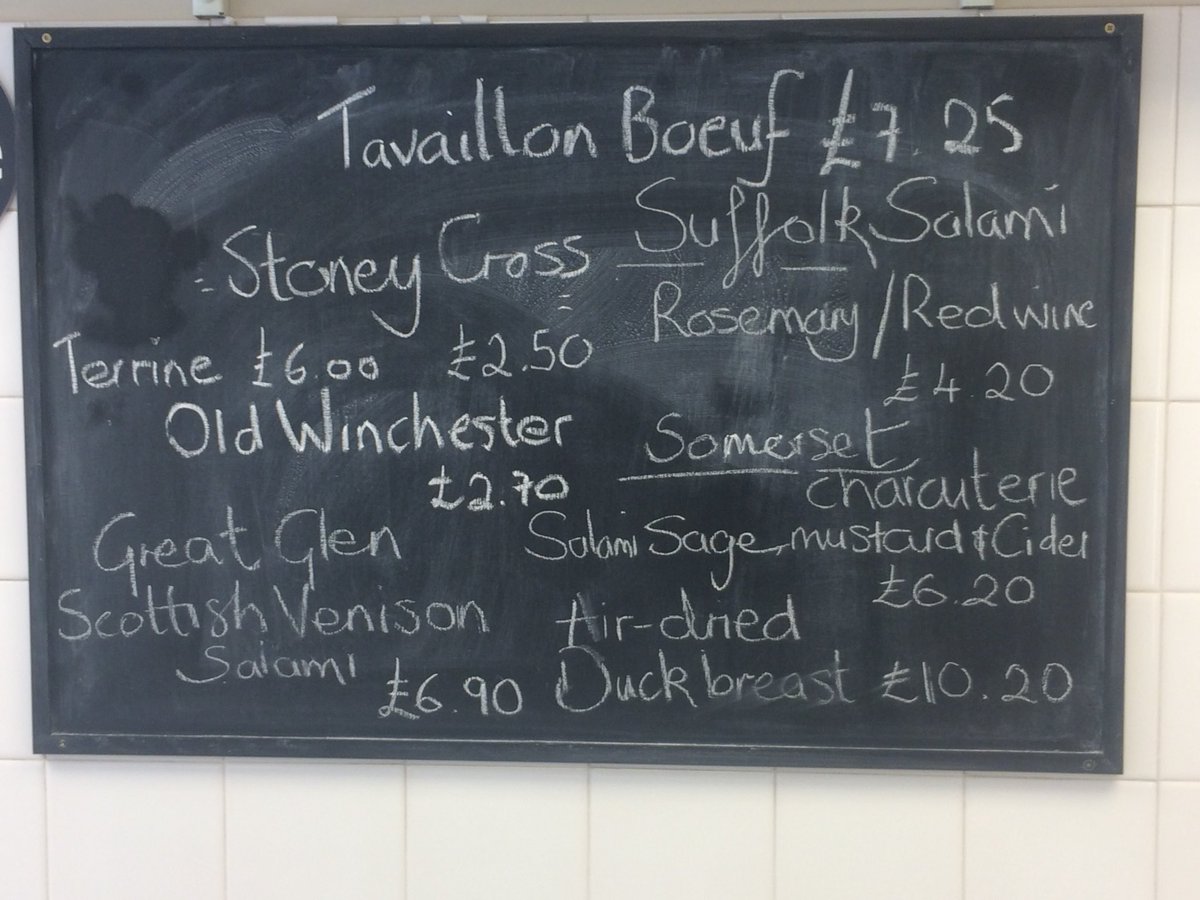 Tavaillon Boeuf £7.25
= Stoney Cross =
Terrine £6.00 £2.50
Old Winchester
£2.70
Great Glen
Scottish Venison
Salami
£6.90
Suffolk Salami
Rosemary / Red wine
£4.20
Somerset
charcuterie
Salami Sage, mustard & Cider
£6.20
Air-dried
Duck breast £10.20